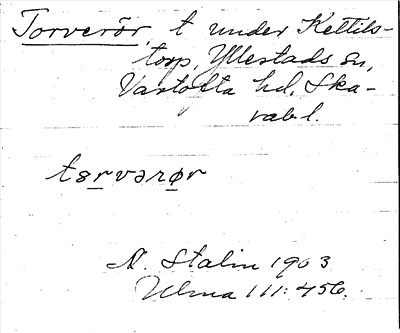 Torverör, t under Kettils-
torp, Yllestads sn,
Vartofta hd, Ska-
rab. l.
tɛrvərør
N. Stalin 1903
Ulma 111:456.